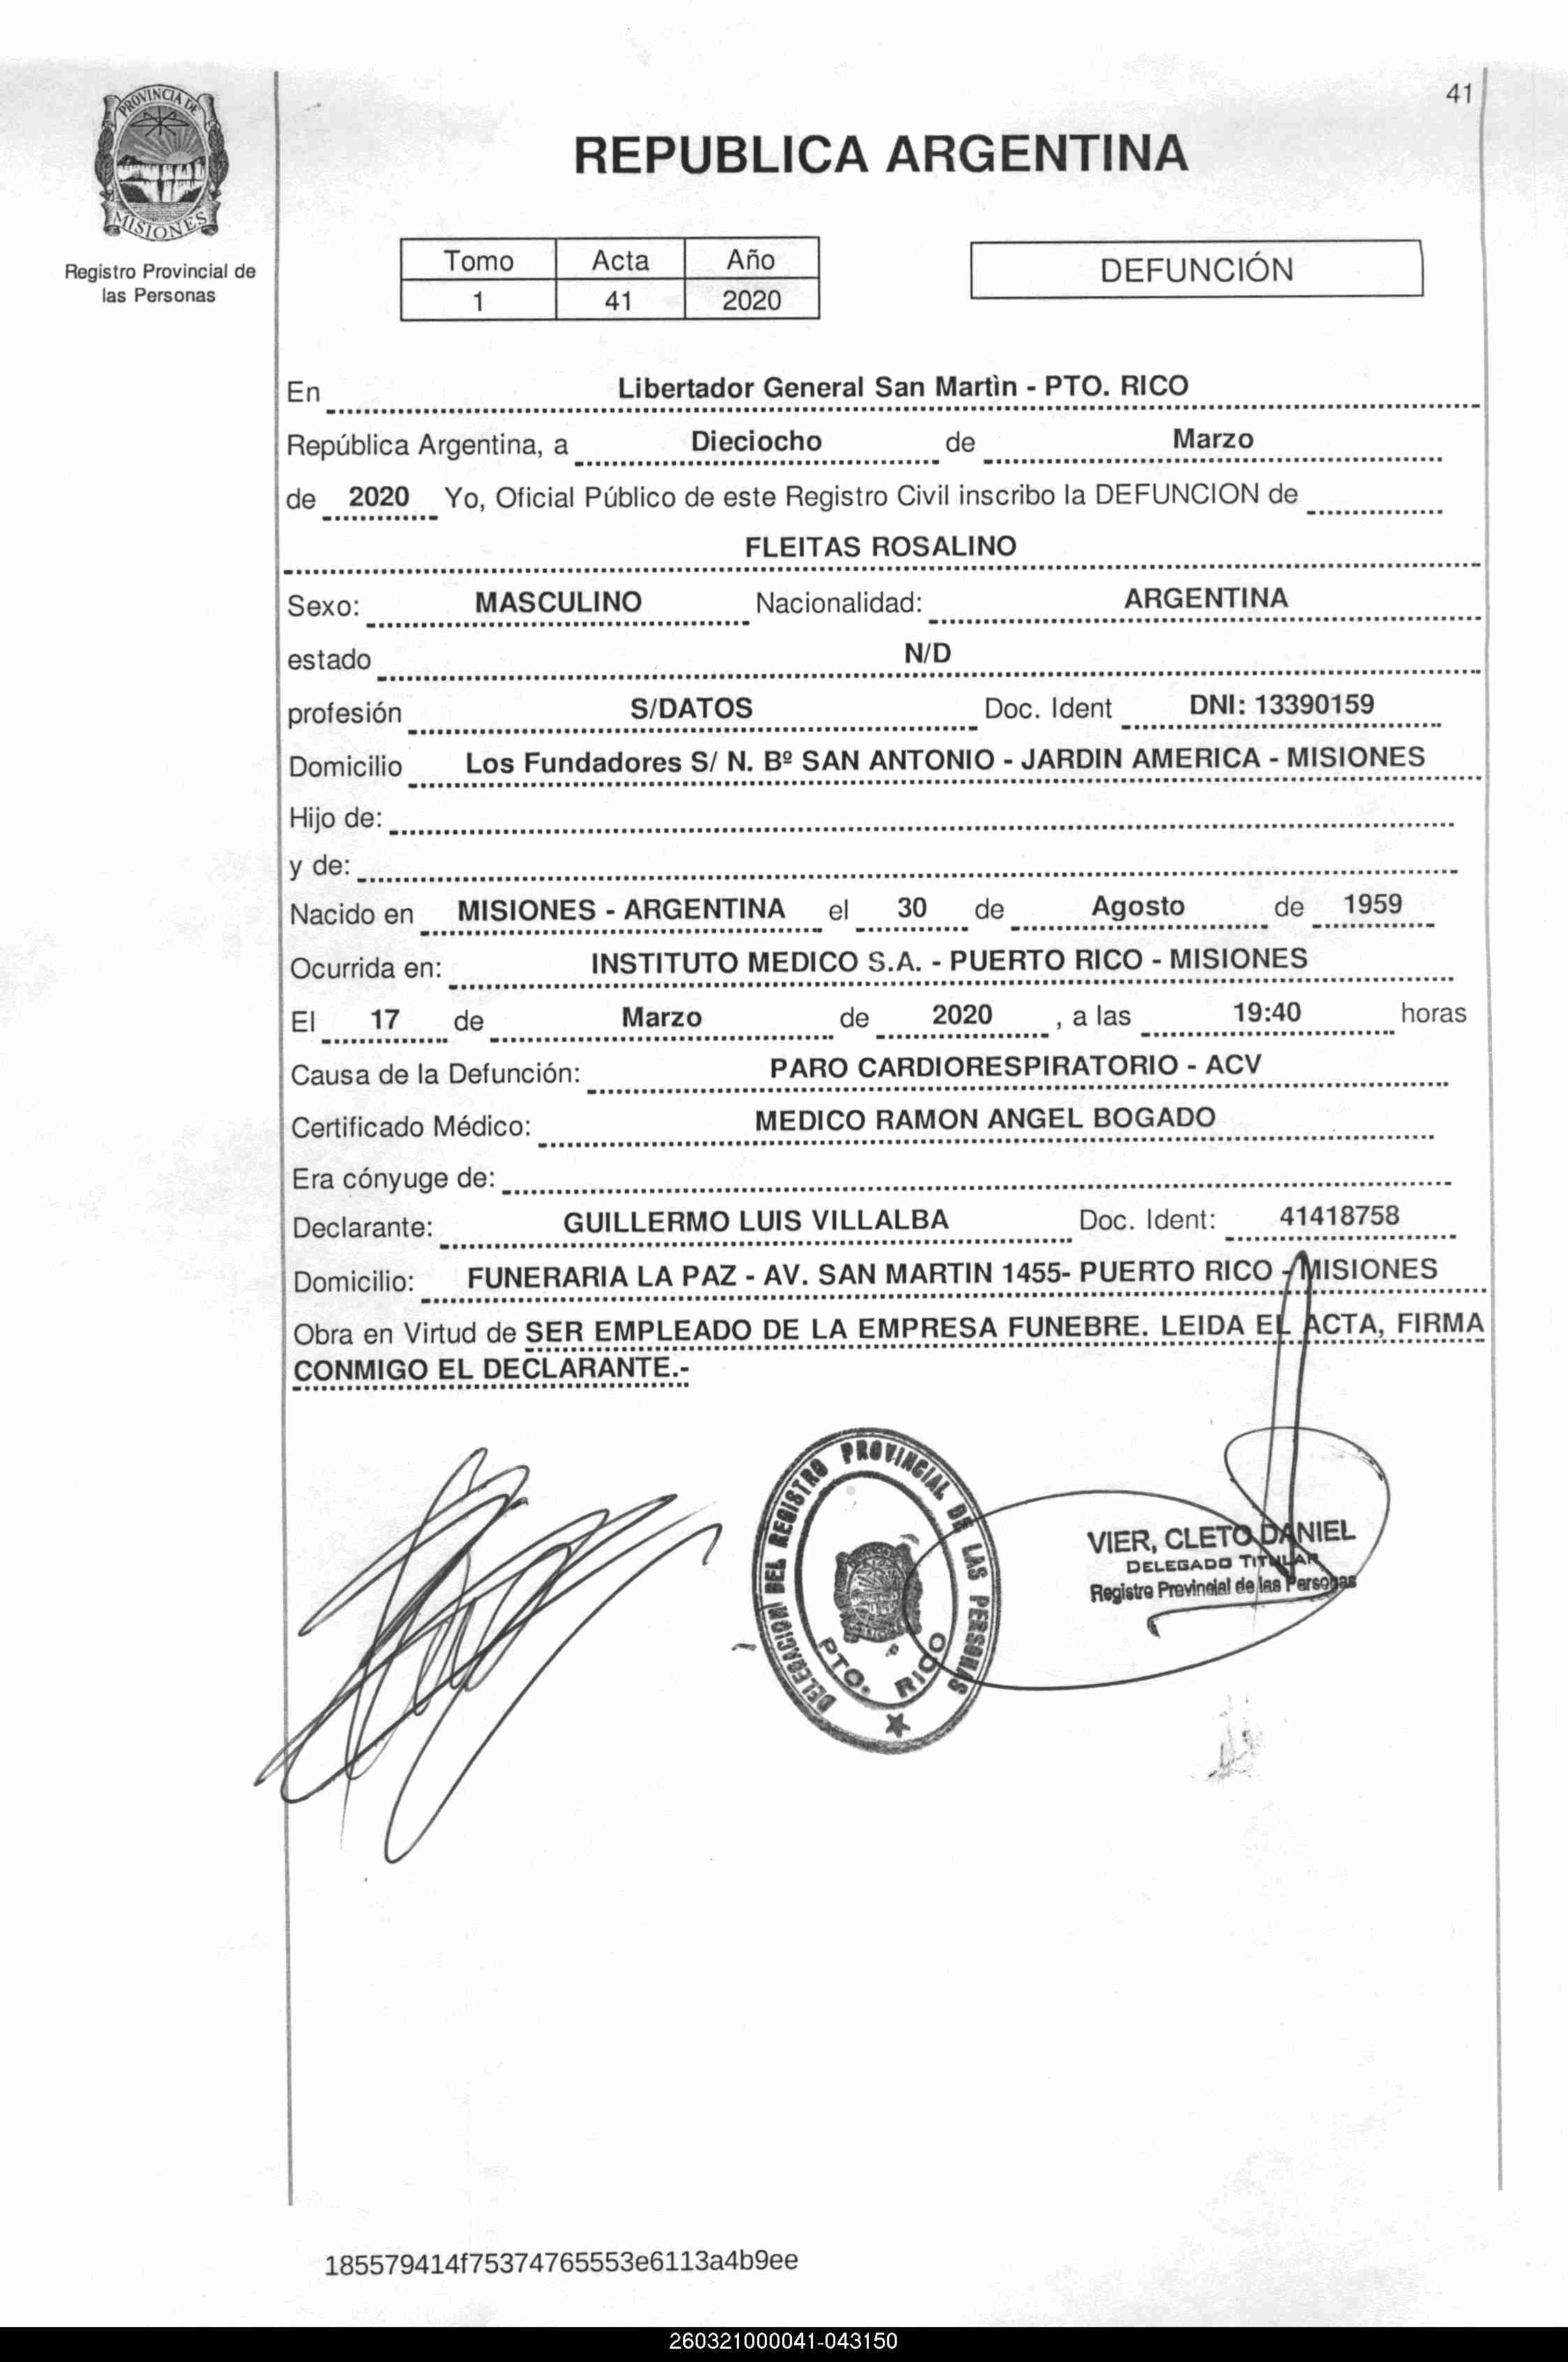 41
PROVINCIA DE
MISIONES
Registro Provincial de
las Personas
REPUBLICA ARGENTINA
Tomo Acta Año
1 41 2020
DEFUNCIÓN
En Libertador General San Martìn - PTO. RICO
República Argentina, a Dieciocho de Marzo
de 2020 Yo, Oficial Público de este Registro Civil inscribo la DEFUNCION de
FLEITAS ROSALINO
Sexo: MASCULINO Nacionalidad: ARGENTINA
estado N/D
profesión S/DATOS Doc. Ident DNI: 13390159
Domicilio Los Fundadores S/ N. Bº SAN ANTONIO - JARDIN AMERICA - MISIONES
Hijo de:
y de:
Nacido en MISIONES - ARGENTINA el 30 de Agosto de 1959
Ocurrida en: INSTITUTO MEDICO S.A. - PUERTO RICO - MISIONES
El 17 de Marzo de 2020 , a las 19:40 horas
Causa de la Defunción: PARO CARDIORESPIRATORIO - ACV
Certificado Médico: MEDICO RAMON ANGEL BOGADO
Era cónyuge de:
Declarante: GUILLERMO LUIS VILLALBA Doc. Ident: 41418758
Domicilio: FUNERARIA LA PAZ - AV. SAN MARTIN 1455- PUERTO RICO - MISIONES
Obra en Virtud de SER EMPLEADO DE LA EMPRESA FUNEBRE. LEIDA EL ACTA, FIRMA
CONMIGO EL DECLARANTE.-
DELEGACION DEL REGISTRO PROVINCIAL DE LAS PERSONAS
PTO. RICO
VIER, CLETO DANIEL
DELEGADO TITULAR
Registro Provincial de las Personas
185579414f75374765553e6113a4b9ee
260321000041-043150